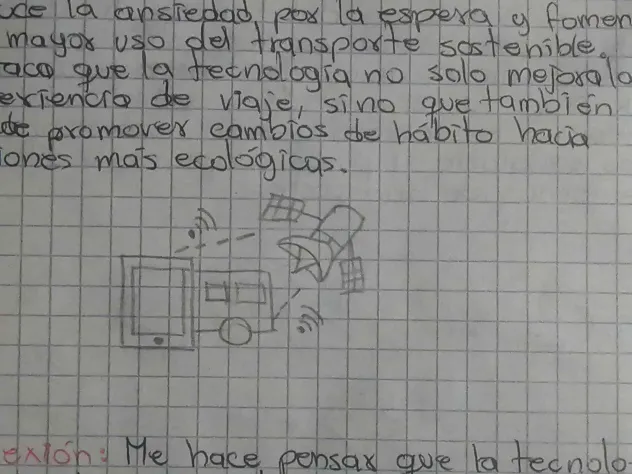 de la ansiedad por la espera y fomen
mayor uso del transporte sostenible.
aca que la tecnología no solo mejora la
exriencia de viaje, sino que también
de promover cambios de hábito hacia
iones más ecológicas.
exión: Me hace pensar que la tecnolo